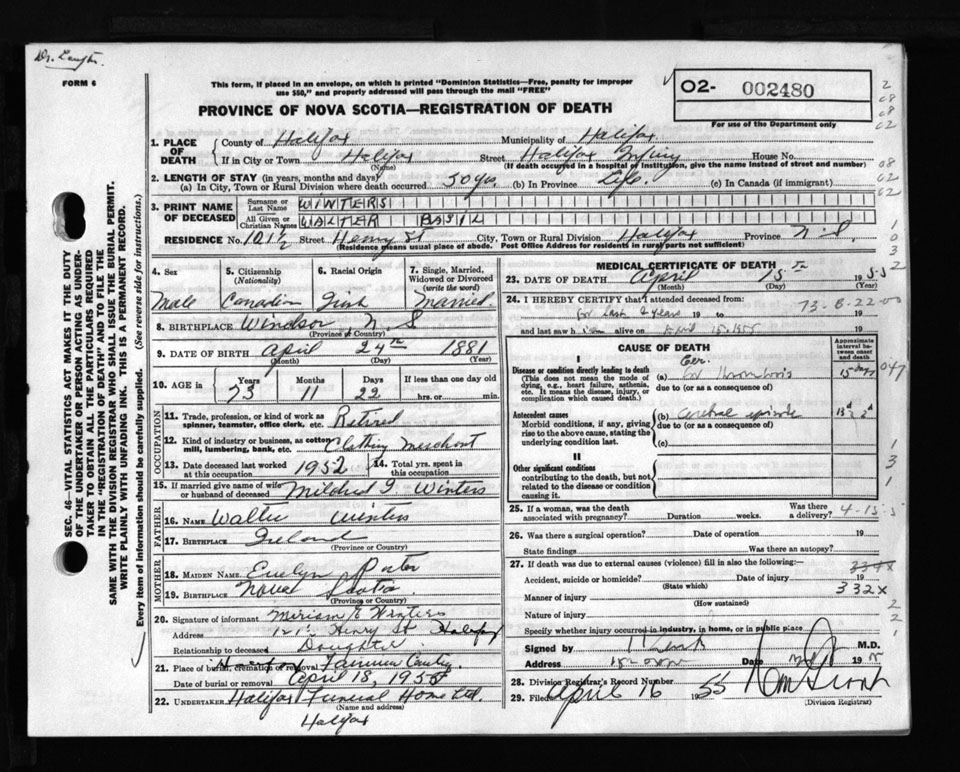 Dr.
FORM 6
This form, if placed in an envelope, on which is printed "Dominion Statistics—Free, penalty for improper
use $50," and properly addressed will pass through the mail "FREE"
PROVINCE OF NOVA SCOTIA—REGISTRATION OF DEATH
O2- 002480
For use of the Department only
SEC. 46—VITAL STATISTICS ACT MAKES IT THE DUTY
OF THE UNDERTAKER OR PERSON ACTING AS UNDER-
TAKER TO OBTAIN ALL THE PARTICULARS REQUIRED
IN THE "REGISTRATION OF DEATH" AND TO FILE THE
SAME WITH THE DIVISION REGISTRAR WHO SHALL ISSUE THE BURIAL PERMIT.
WRITE PLAINLY WITH UNFADING INK. THIS IS A PERMANENT RECORD.
Every item of information should be carefully supplied. (See reverse side for instructions.)
1. PLACE OF DEATH
County of Halifax Municipality of Halifax
If in City or Town Halifax Street Halifax Infiry House No.
(Name) (If death occurred in a hospital or institution, give the name instead of street and number)
2. LENGTH OF STAY (in years, months and days)
(a) In City, Town or Rural Division where death occurred 50 yrs. (b) In Province Life. (c) In Canada (if immigrant)
3. PRINT NAME OF DECEASED
Surname or Last Name WINTERS
All Given or Christian Names WALTER BASIL
RESIDENCE No. 121½ Street Henry St City, Town or Rural Division Halifax Province N.S.
(Residence means usual place of abode. Post Office Address for residents in rural parts not sufficient)
4. Sex 5. Citizenship (Nationality) 6. Racial Origin 7. Single, Married, Widowed or Divorced (write the word)
Male Canadian Irish Married.
8. BIRTHPLACE Windsor N S
(Province or Country)
9. DATE OF BIRTH April 24th 1881
(Month) (Day) (Year)
10. AGE in Years Months Days If less than one day old
73 11 22 hrs. or min.
OCCUPATION
11. Trade, profession, or kind of work as
spinner, teamster, office clerk, etc. Retired
12. Kind of industry or business, as cotton
mill, lumbering, bank, etc. Clothing Merchant
13. Date deceased last worked
at this occupation 1952 14. Total yrs. spent in
this occupation
15. If married give name of wife
or husband of deceased Mildred I Winters
FATHER
16. NAME Walter Winters
17. BIRTHPLACE Ireland
(Province or Country)
MOTHER
18. MAIDEN NAME Evelyn Porter
19. BIRTHPLACE Nova Scotia
(Province or Country)
20. Signature of informant Miriam E Winters
Address 121½ Henry St Halifax
Relationship to deceased Daughter
21. Place of burial, cremation or removal
Date of burial or removal April 18, 1955
22. UNDERTAKER Halifax Funeral Home Ltd.
(Name and address)
Halifax
MEDICAL CERTIFICATE OF DEATH
23. DATE OF DEATH April 15th 1955
(Month) (Day)
24. I HEREBY CERTIFY that I attended deceased from:
for last years 19
and last saw him alive on April 15 1955 19
CAUSE OF DEATH
Approximate interval between onset and death
I
Disease or condition directly leading to death
(This does not mean the mode of
dying, e.g., heart failure, asthenia,
etc. It means the disease, injury, or
complication which caused death.)
(a) Cer. Thrombosis 15 days
due to (or as a consequence of)
Antecedent causes
Morbid conditions, if any, giving
rise to the above cause, stating the
underlying condition last.
(b) Cerebral episode
due to (or as a consequence of)
(c)
II
Other significant conditions
contributing to the death, but not
related to the disease or condition
causing it.
25. If a woman, was the death
associated with pregnancy? Duration weeks. Was there
a delivery? 4-15-5
26. Was there a surgical operation? Date of operation 19
State findings Was there an autopsy?
27. If death was due to external causes (violence) fill in also the following:—
Accident, suicide or homicide? Date of injury 19
(State which)
332X
Manner of injury
(How sustained)
Nature of injury
Specify whether injury occurred in industry, in home, or in public place
Signed by M.D.
Address Date 19
28. Division Registrar's Record Number
29. Filed April 16 1955
(Division Registrar)